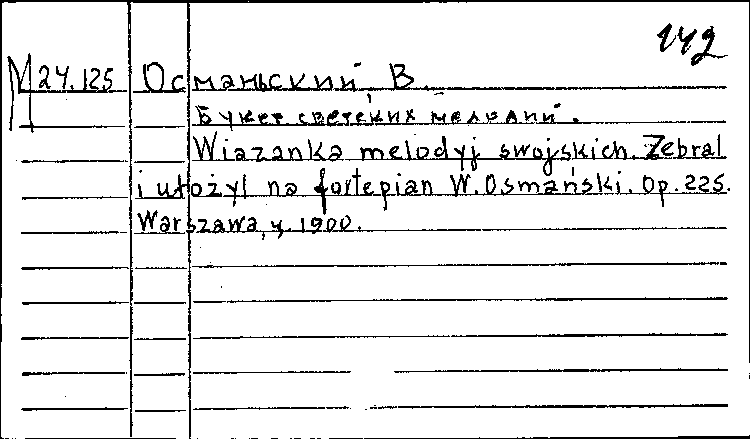 142
М 24.125 Османьский, В.
Букет светских мелодий.
Wiazanka melodyj swojskich. Zebral
i ułożyl na fortepian W. Osmański. Op. 225.
Warszawa, ц. 1900.